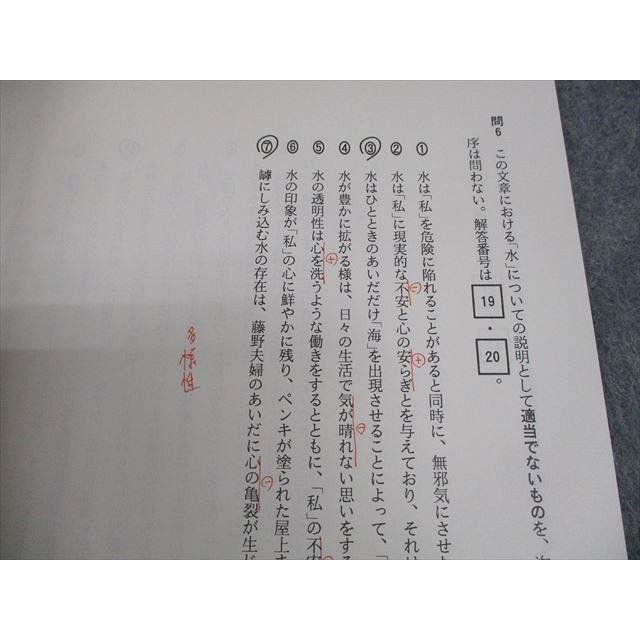 問6 この文章における「水」についての説明として適当でないものを、
序は問わない。解答番号は 19 ・ 20 。
① 水は「私」を危険に陥れることがあると同時に、無邪気にさせ
② 水は「私」に現実的な不安と心の安らぎとを与えており、それ
③ 水はひとときのあいだだけ「海」を出現させることによって、「
④ 水が豊かに拡がる様は、日々の生活で気が晴れない思いをする
⑤ 水の透明性は心を洗うような働きをするとともに、「私」の不安
⑥ 水の印象が「私」の心に鮮やかに残り、ペンキが塗られた屋上
⑦ 罅にしみ込む水の存在は、藤野夫婦のあいだに心の亀裂が生じ
⊖
⊕
⊖
⊕
⊖
多様性